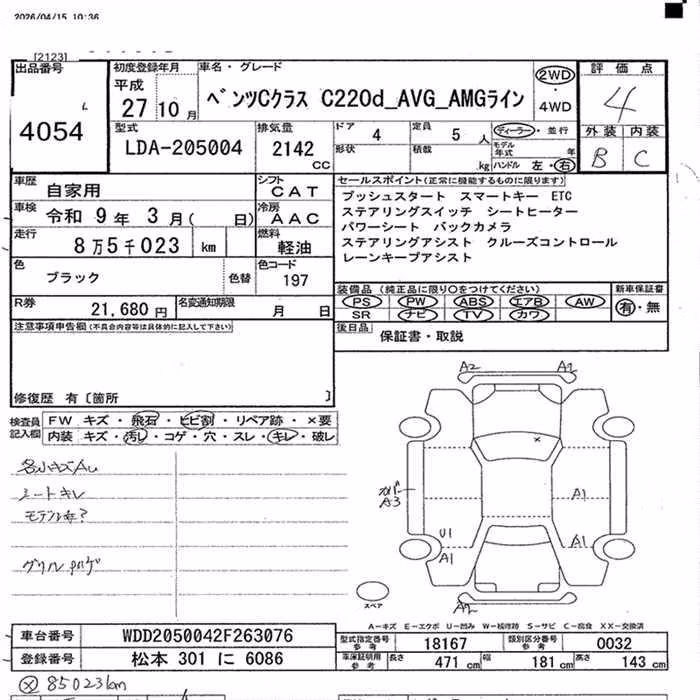 2026/04/15 10:36
[2123]
出品番号
4054
初度登録年月
平成
27 10 月
車名・グレード
ベンツCクラス C220d_AVG_AMGライン
2WD
・4WD
評価点
4
外装 内装
B C
型式
LDA-205004
排気量
2142 CC
ドア 4
定員 5 人
形状
積載 .kg
ディーラー・並行
モデル年式 年
ハンドル 左・右
車歴
自家用
シフト
CAT
車検
令和 9年 3月( 日)
冷房
AAC
走行
8万5千023 km
燃料
軽油
色
ブラック
色替
色コード
197
R券
21,680 円
名変通知期限
月 日
セールスポイント(正常に機能するものに限ります)
プッシュスタート スマートキー ETC
ステアリングスイッチ シートヒーター
パワーシート バックカメラ
ステアリングアシスト クルーズコントロール
レーンキープアシスト
装備品(純正品に限り○をつけてください)
PS PW ABS エアB AW
SR ナビ TV カワ
新車保証書
有・無
後日品
保証書・取説
注意事項申告欄(不具合内容等は具体的に記入して下さい)
修復歴 有〔箇所 〕
検査員
記入欄
FW キズ・飛石・ヒビ割・リペア跡・×要
内装 キズ・汚レ・コゲ・穴・スレ・キレ・破レ
各小キズAu
シートキレ
モデル年?
グリル
A2
A1
A3
A1
U1
A1
A1
A2
スペア
A-キズ E-エクボ U-凹み W-補修跡 S-サビ C-腐食 XX-交換済
車台番号
WDD2050042F263076
登録番号
松本 301 に 6086
型式指定番号
参考
18167
類別区分番号
参考
0032
車庫証明用
参考
長さ 471 cm
幅 181 cm
高さ 143 cm
85023km